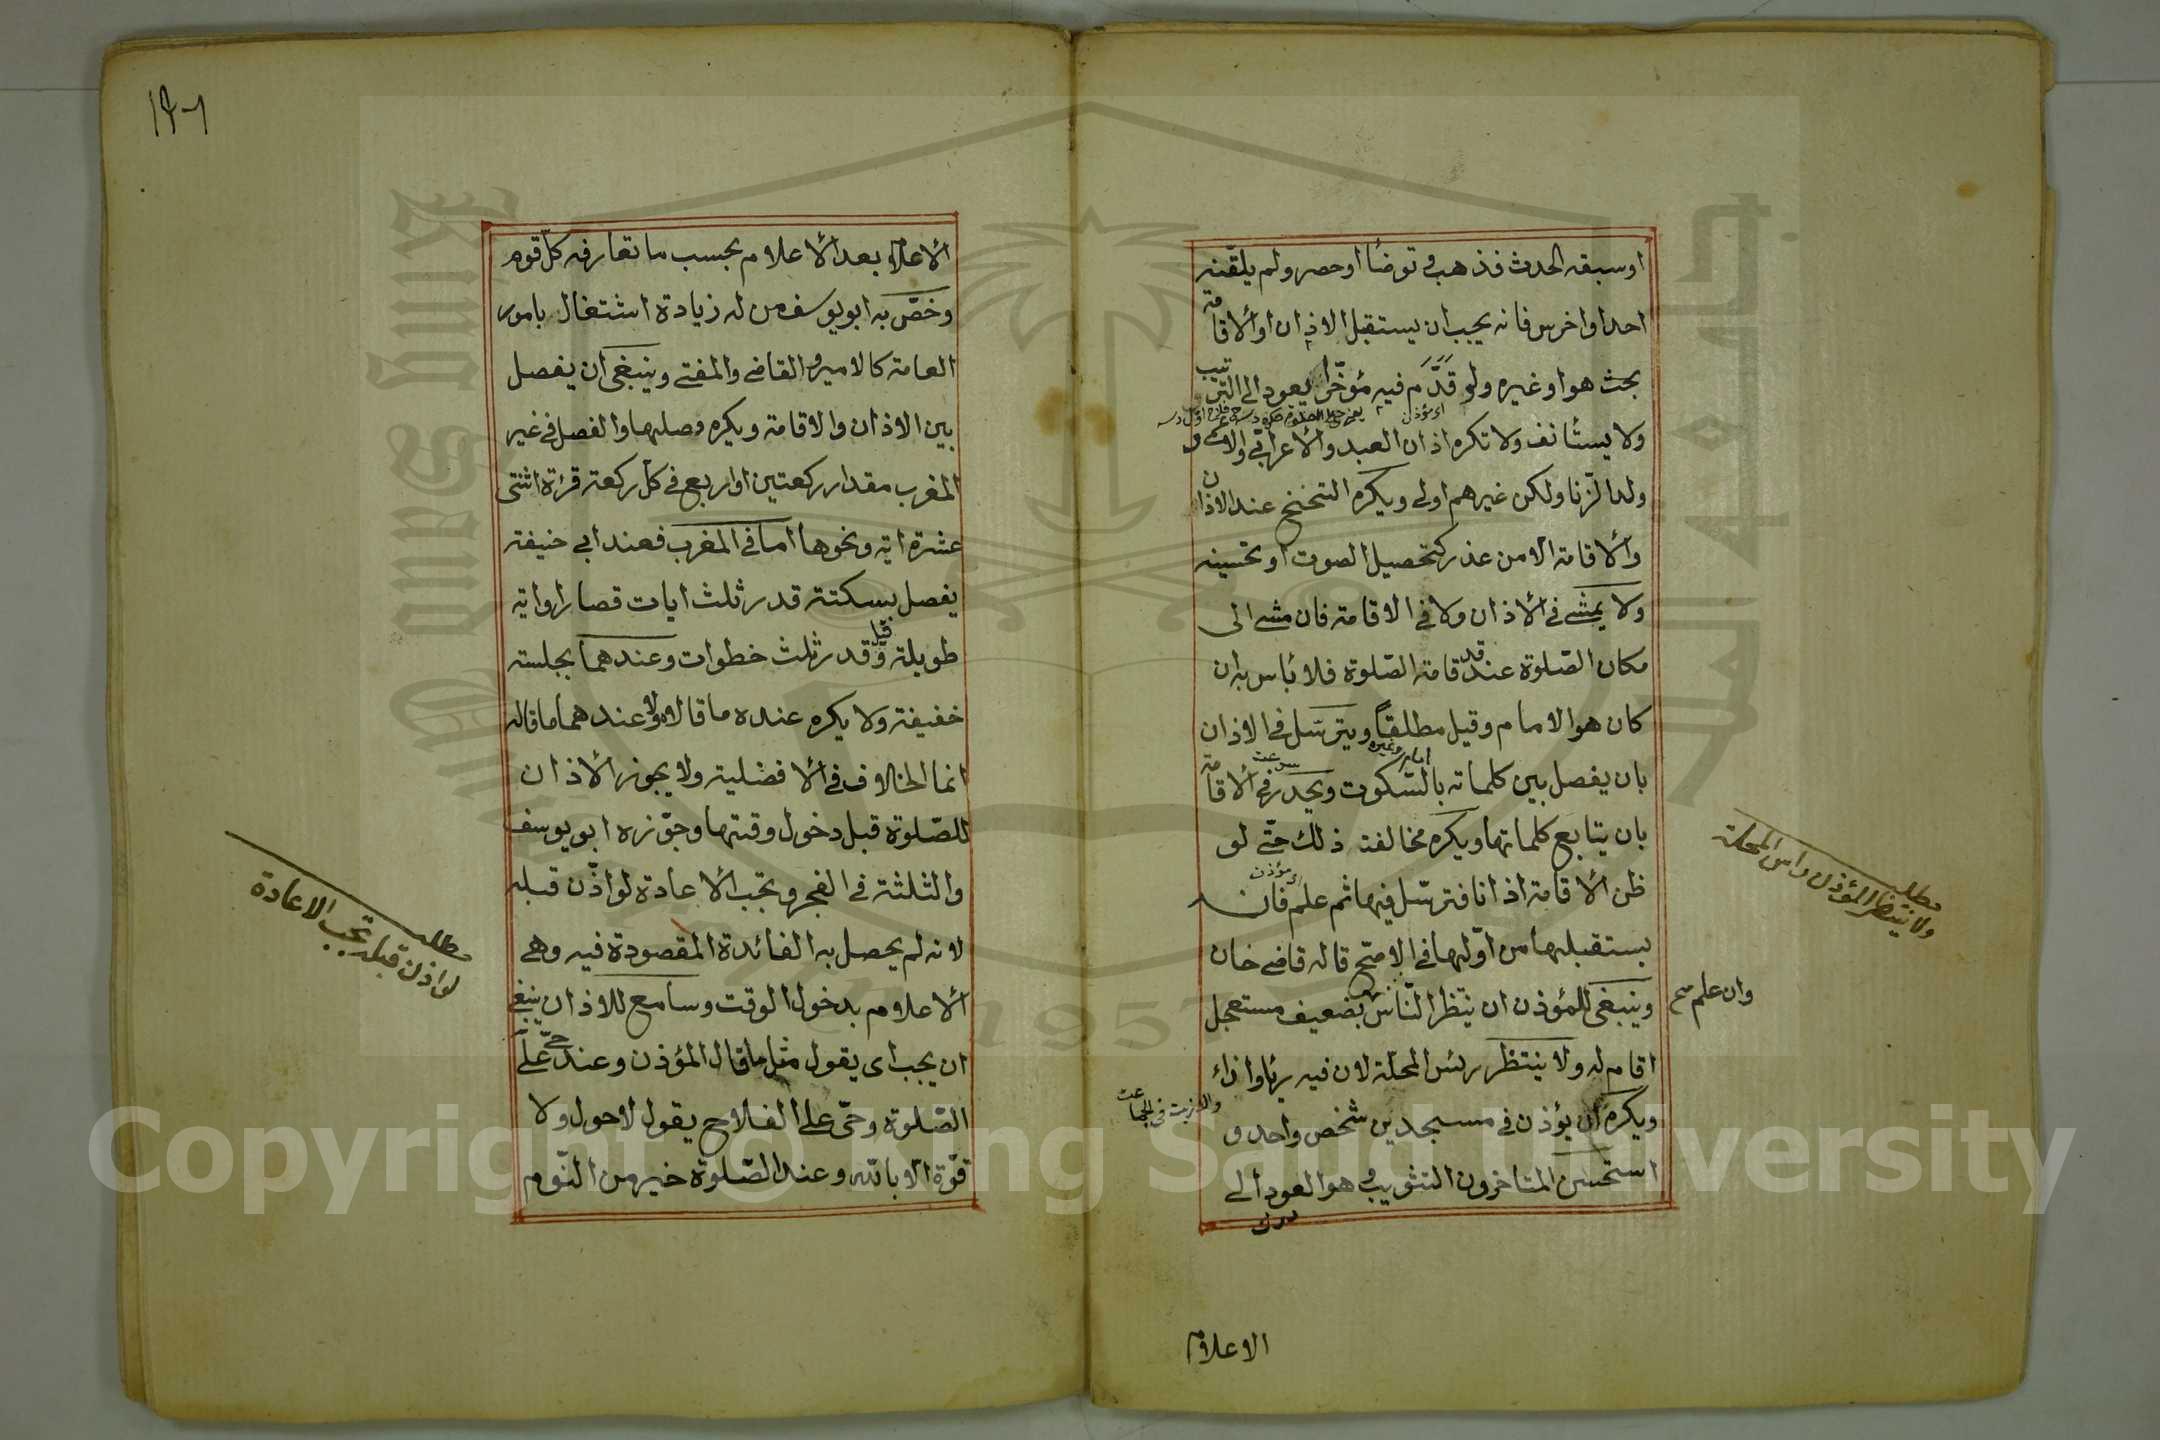 او سبقه الحدث فذهب وتوضأ او حصر ولم يلقنه
احد او اخرس فانه يجب ان يستقبل الاذان او الاقامة
بحث هو او غيره ولو قدّم فيه مؤخّرا يعود الى الترتيب
ولا يستأنف ولا تكره اذان العبد والأعرابي والاعمى و
ولد الزنا ولكن غيرهم اولى ويكره التنحنح عند الاذان
والاقامة الا من عذر كتحصيل الصوت او تحسينه
ولا يمشى في الاذان ولا في الاقامة فان مشى الى
مكان الصّلوة عند قد قامة الصّلوة فلا بأس به ان
كان هو الامام وقيل مطلقاً ويترسّل في الاذان
امام وغيره
سرعت
بان يفصل بين كلماته بالسّكوت ويحدر في الاقامة
بان يتابع كلماتها ويكره مخالفة ذلك حتّى لو
اى مؤذن
ظن الاقامة اذانا فترسّل فيها ثم علم فانه
يستقبلها من اوّلها في الاصح قاله قاضى خان
وينبغى للمؤذن ان ينتظر النّاس بضعيف مستعجل
وان علم صح
اقام له ولا ينتظر رئس المحلّة لان فيه رياء واذاء
ويكره ان يؤذن في مسجدين شخص واحد و
استحسن المتاخرون التثويب وهو العود الى
الاعلام
مطلب
ولا ينتظر المؤذن راس المحلة
١٩٠٦
الاعلام بعد الاعلام بحسب ما تعارفه كلّ قوم
وخصّ به ابو يوسف من له زيادة اشتغال بامور
العامة كالامير و القاضى والمفتى وينبغى ان يفصل
بين الاذان والاقامة ويكره وصلها والفصل في غير
المغرب مقدار ركعتين او اربع في كلّ ركعة قرءة اثنتى
عشرة اية ونحوها اما في المغرب فعند ابى حنيفة
يفصل بسكتة قدر ثلث ايات قصار او اية
طويلة وقيل قدر ثلث خطوات وعندهما بجلسة
خفيفة ولا يكره عنده ما قالاه ولا عندهما ما قاله
انما الخلاف في الافضلية ولا يجوز الاذان
للصّلوة قبل دخول وقتها وجوّزه ابو يوسف
والثلثة في الفجر وتجب الاعادة لو اذّن قبله
لانه لم يحصل به الفائدة المقصودة فيه وهى
الاعلام بدخول الوقت وسامع للاذان ينبغى
ان يجب اى يقول مثل ما قال المؤذن وعند حىّ على
الصّلوة وحىّ على الفلاح يقول لا حول ولا
قوّة الّا بالله وعند الصّلوة خير من النّوم
مطلب
لو اذن قبله تجب الاعادة